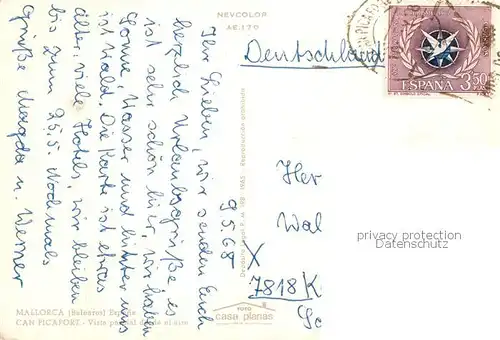 NEVCOLOR
AE.170
Deutschland
ESPAÑA 3,50
9.5.68
Ihr Lieben, wir senden Euch
herzlich Urlaubsgrüße. es
ist sehr schön hier, wir haben
Sonne, Wasser und hinter uns
ist Wald. Die Karte ist etwas
älter, viele Hotels, wir bleiben
bis zum 25.5. Nochmals
Grüße Magda u. Werner
Her
Wal
X
7818 K
privacy protection
Datenschutz
Reproducción prohibida
MALLORCA (Baleares) España
CAN PICAFORT. - Vista parcial desde el aire
FOTO
casa planas